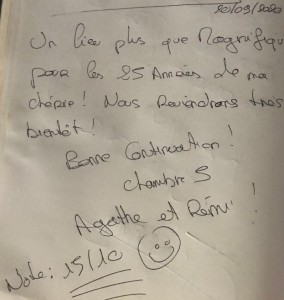 20/09/2020
Un lieu plus que Magnifique
pour les 25 Années de ma
chérie! Nous Reviendrons très
bientôt!
Bonne Continuation!
Chambre 5
Agathe et Rémi!
Note: 15/10